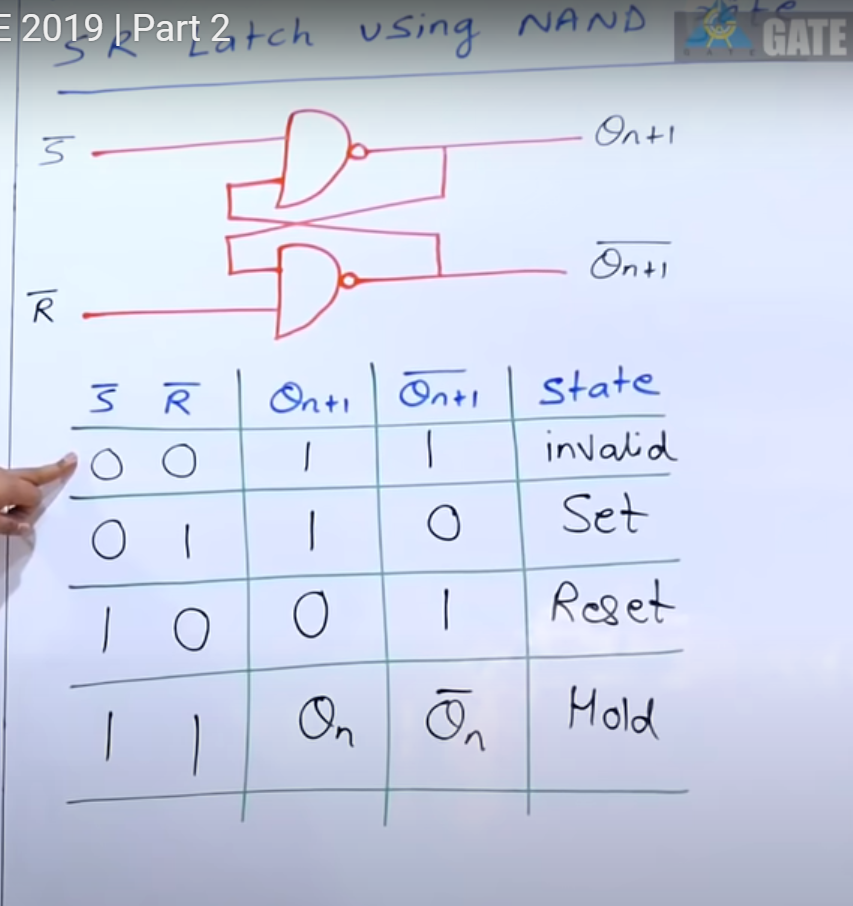 E 2019 | Part 2
SR Latch using NAND
GATE
S̅ Qn+1
R̅ Q̅n+1
S̅ R̅ Qn+1 Q̅n+1 State
0 0 1 1 invalid
0 1 1 0 Set
1 0 0 1 Reset
1 1 Qn Q̅n Hold